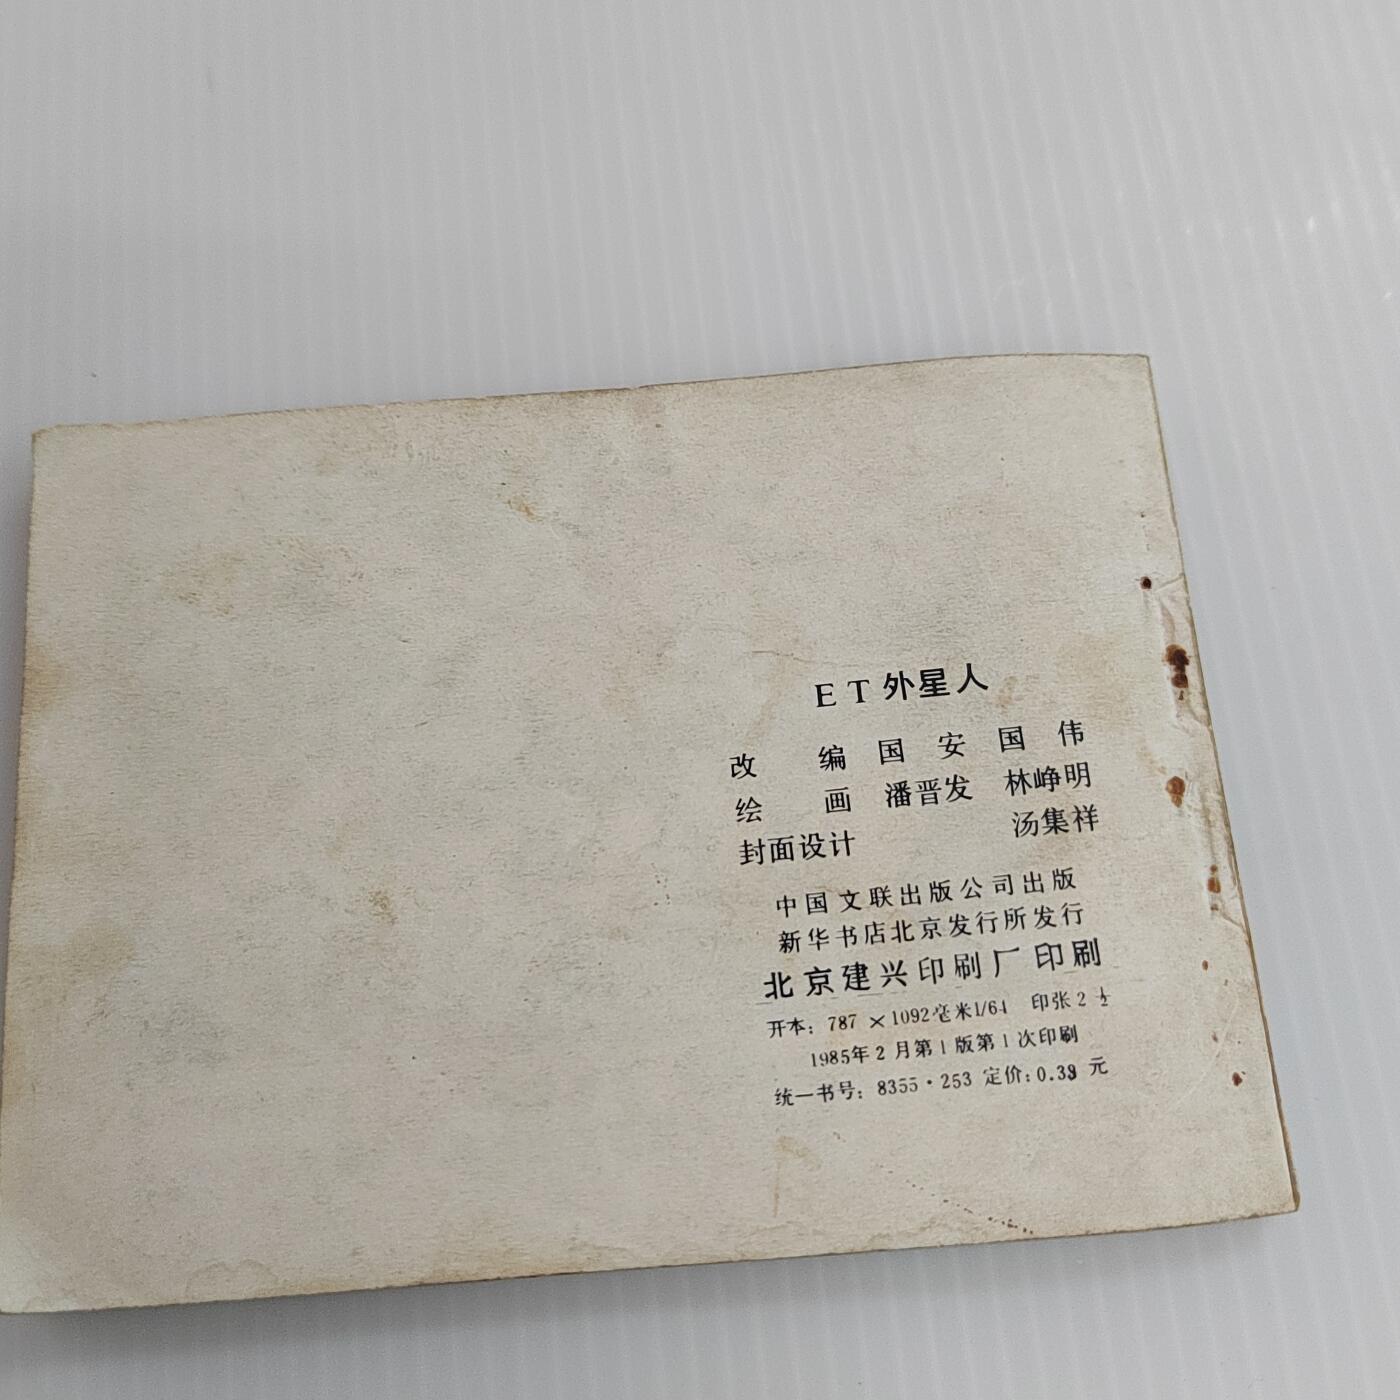 ET外星人
改编 国安 国伟
绘画 潘晋发 林峥明
封面设计 汤集祥
中国文联出版公司出版
新华书店北京发行所发行
北京建兴印刷厂印刷
开本：787×1092毫米1/64 印张2½
1985年2月第1版第1次印刷
统一书号：8355·253 定价：0.39元